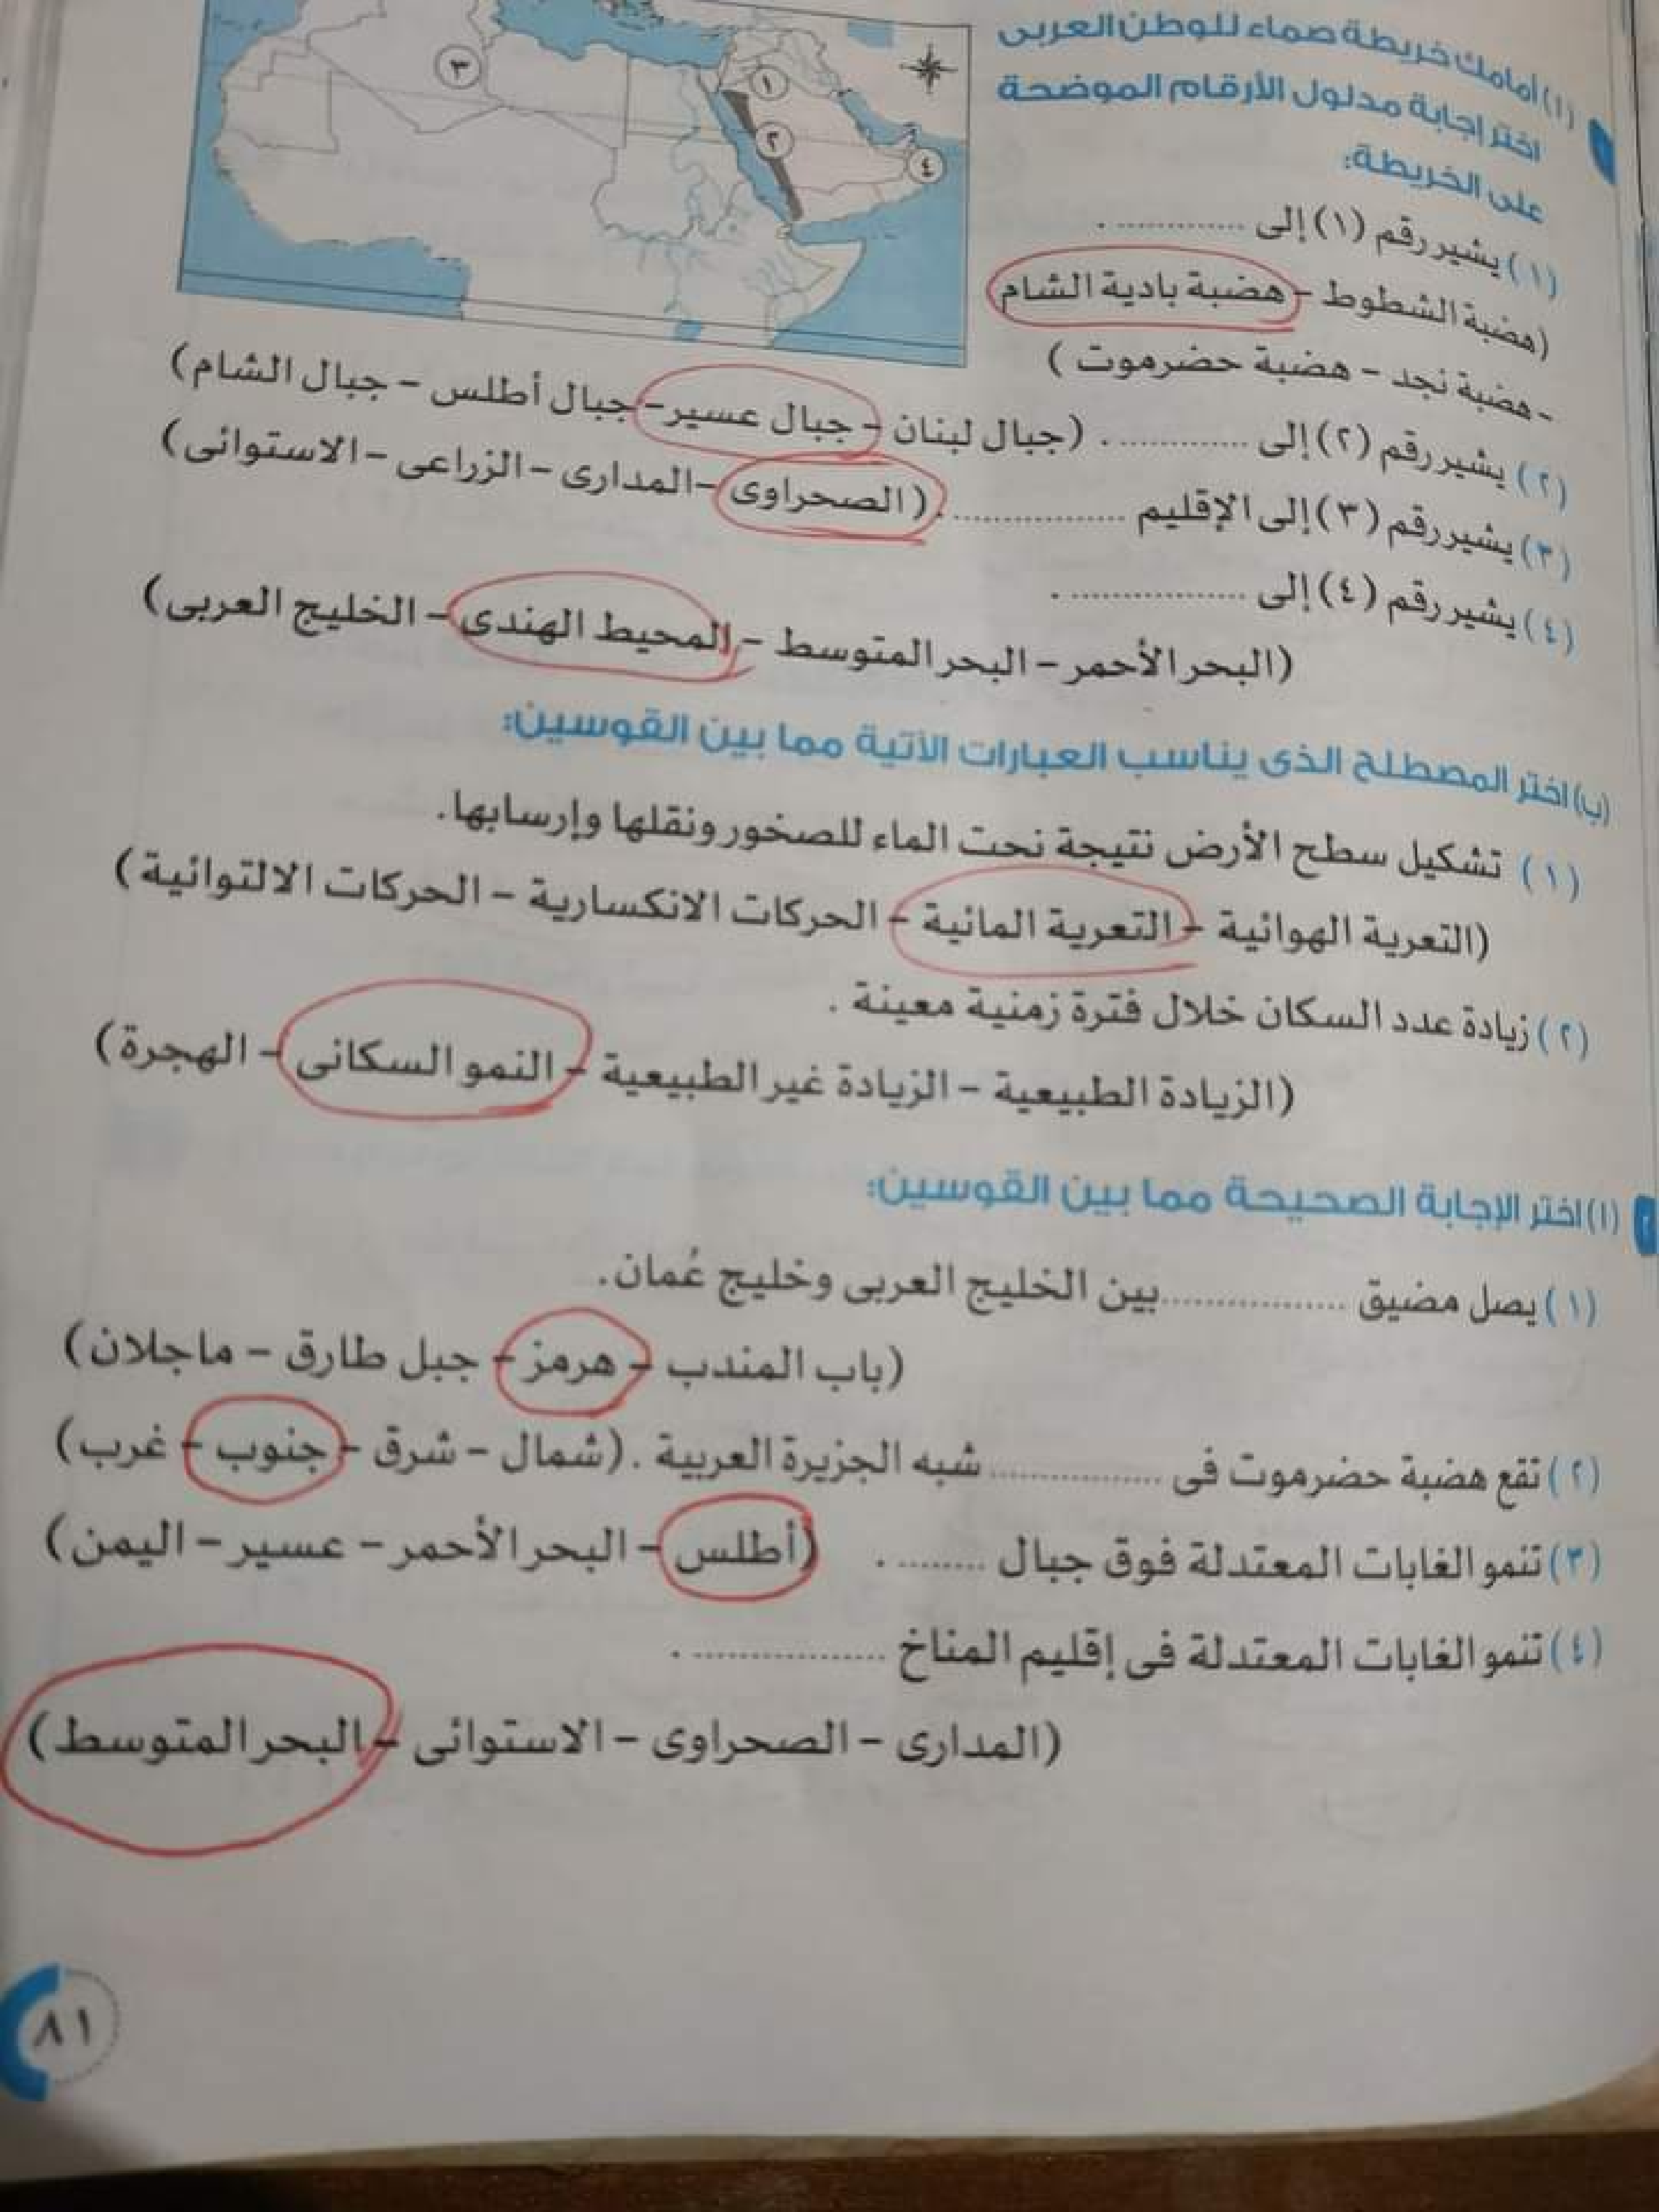 (١) أمامك خريطة صماء للوطن العربى
اختر إجابة مدلول الأرقام الموضحة
على الخريطة:
١
٢
٣
٤
(١) يشير رقم (١) إلى ............. .
(هضبة الشطوط - هضبة بادية الشام
- هضبة نجد - هضبة حضرموت )
(٢) يشير رقم (٢) إلى ............. . (جبال لبنان - جبال عسير - جبال أطلس - جبال الشام)
(٣) يشير رقم (٣) إلى الإقليم ................. . (الصحراوى - المدارى - الزراعى - الاستوائى)
(٤) يشير رقم (٤) إلى ................. .
(البحر الأحمر - البحر المتوسط - المحيط الهندى - الخليج العربى)
(ب) اختر المصطلح الذى يناسب العبارات الآتية مما بين القوسين:
(١) تشكيل سطح الأرض نتيجة نحت الماء للصخور ونقلها وإرسابها.
(التعرية الهوائية - التعرية المائية - الحركات الانكسارية - الحركات الالتوائية)
(٢) زيادة عدد السكان خلال فترة زمنية معينة .
(الزيادة الطبيعية - الزيادة غير الطبيعية - النمو السكانى - الهجرة)
٢ (ا) اختر الإجابة الصحيحة مما بين القوسين:
(١) يصل مضيق .................. بين الخليج العربى وخليج عُمان.
(باب المندب - هرمز - جبل طارق - ماجلان)
(٢) تقع هضبة حضرموت فى ................ شبه الجزيرة العربية . (شمال - شرق - جنوب - غرب)
(٣) تنمو الغابات المعتدلة فوق جبال ........ . (أطلس - البحر الأحمر - عسير - اليمن)
(٤) تنمو الغابات المعتدلة فى إقليم المناخ .................. .
(المدارى - الصحراوى - الاستوائى - البحر المتوسط)
٨١